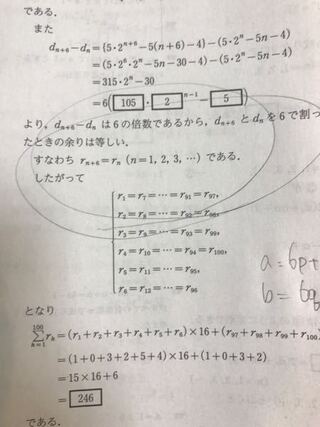 である．
また
dₙ₊₆−dₙ={5・2ⁿ⁺⁶−5(n+6)−4}−(5・2ⁿ−5n−4)
=(5・2⁶・2ⁿ−5n−30−4)−(5・2ⁿ−5n−4)
=315・2ⁿ−30
=6(105・2ⁿ⁻¹−5)
より，dₙ₊₆−dₙ は6の倍数であるから，dₙ₊₆ とdₙを6で割っ
たときの余りは等しい．
すなわち rₙ₊₆=rₙ (n=1, 2, 3, …) である．
したがって
r₁=r₇=…=r₉₁=r₉₇,
r₂=r₈=…=r₉₂=r₉₈,
r₃=r₉=…=r₉₃=r₉₉,
r₄=r₁₀=…=r₉₄=r₁₀₀,
r₅=r₁₁=…=r₉₅,
r₆=r₁₂=…=r₉₆
a=6p+
b=6q
となり
100
Σ rₖ=(r₁+r₂+r₃+r₄+r₅+r₆)×16+(r₉₇+r₉₈+r₉₉+r₁₀₀)
k=1
=(1+0+3+2+5+4)×16+(1+0+3+2)
=15×16+6
=246
である．